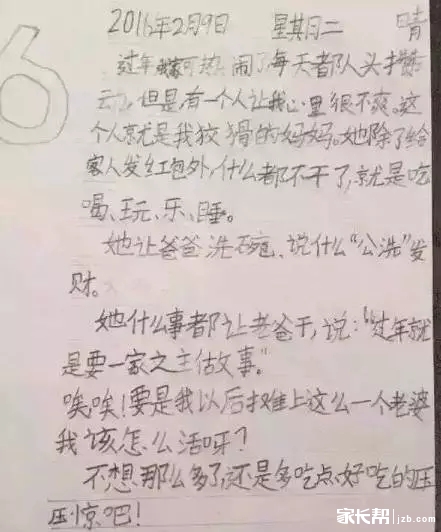 6
2016年2月9日 星期二 晴
过年我家可热闹了,每天都人头攒
动,但是,有一个人让我心里很不爽。这
个人就是我狡猾的妈妈。她除了给
客人发红包外,什么都不干了,就是吃
喝、玩、乐、睡。
她让爸爸洗碗、说什么“公洗”发
财。
她什么事都让老爸干,说:“过年就
是要一家之主估故事。”
唉唉!要是我以后摊上这么一个老婆
我该怎么活呀?
不想那么多了,还是多吃点好吃的压
压惊吧!
家长帮 jzb.com